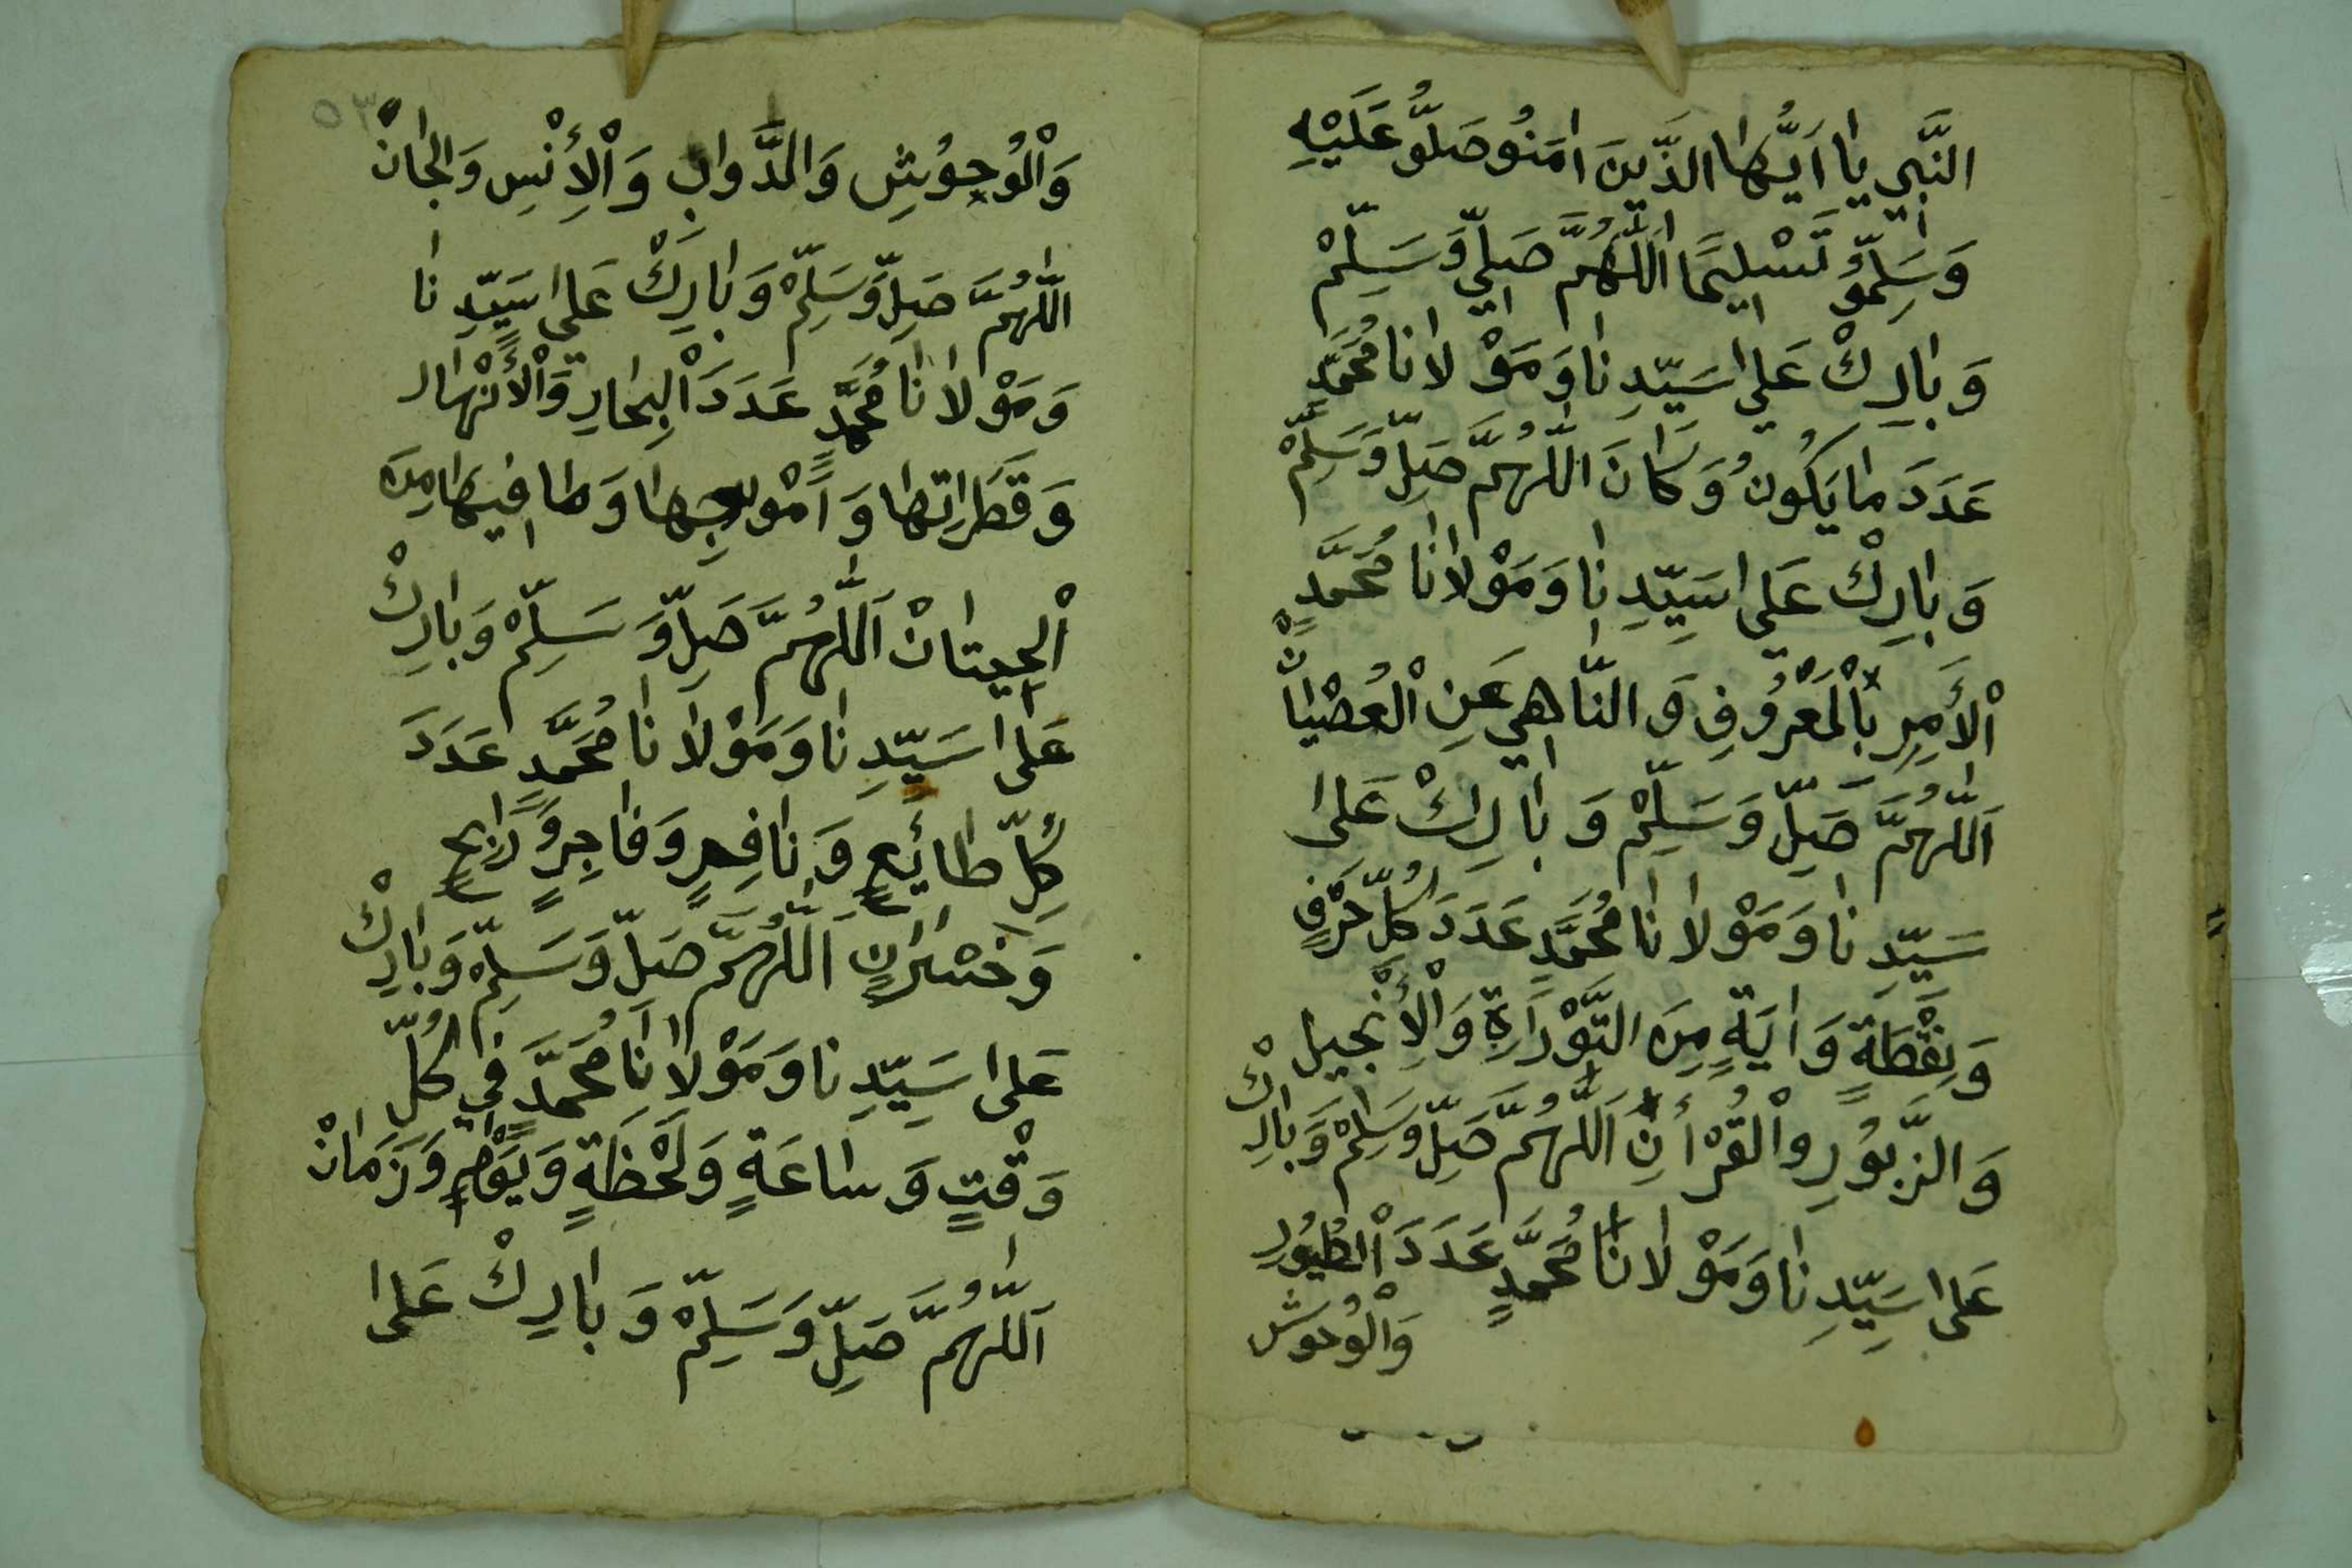 النَّبِي يَا اَيُّهَا الذَّيِنَ امَنُو صَلُّو عَلَيْهِ
وَسَلِّمُو تَسْلِيمًا اَللَّهُمَّ صَلِّي وَسَلِّمْ
وَبَارِكْ عَلَى سَيِّدِنَا وَمَوْلَانَا مُحَمَّدٍ
عَدَدَ مَا يَكُونُ وَكَانَ اللَّهُمَّ صَلِّ وَسَلِّمْ
وَبَارِكْ عَلَى سَيِّدِنَا وَمَوْلَانَا مُحَمَّدٍ
اْلأَمِرِ بِاْلمَعْرُوفِ وَالنَّاهِي عَنِ اْلعُصْيَانْ
اَللَّهُمَّ صَلِّ وَسَلِّمْ وَبَارِكْ عَلَى
سَيِّدِنَا وَمَوْلَانَا مُحَمَّدٍ عَدَدَ كُلِّ حَرْفٍ
وَنِقْطَةٍ وَايَةٍ مِنَ التَّوْرَاةِ وَاْلأِنْجِيلِ
وَالزَّبُورِ واْلقُرْأَنِ اَللَّهُمَّ صَلِّ وَسَلِّمْ وَبَارِكْ
عَلَى سَيِّدِنَا وَمَوْلَانَا مُحَمَّدٍ عَدَدَ اْلطُيُورِ
وَاْلوُحوش
٥٣
وَاْلوُحِوُشِ وَالدَّوَابِ وَاْلأِنْسِ وَالجَانْ
اللَّهُمَّ صَلِّ وَسَلِّمْ وَبَارِكْ عَلَى سَيِّدِنَا
وَمَوْلَانَا مُحَمَّدٍ عَدَدَ اْلبِحَارِ وَاْلأَنْهَار
وَقَطَرَاتِهَا وَاَمْوَاجِهَا وَمَا فِيهَا مِنَ
اْلحِيتَانْ اَللَّهُمَّ صَلِّ وَسَلِّمْ وَبَارِكْ
عَلَى سَيِّدِنَا وَمَوْلَانَا مُحَمَّدٍ عَدَدَ
كُلِّ طَائِعٍ وَنَافِعٍ وَفَاجِرٍ وَرَابِحٍ
وَخَسْرَانٍ اَللَّهُمَّ صَلِّ وَسَلِّمْ وَبَارِكْ
عَلَى سَيِّدِنَا وَمَوْلَانَا مُحَمَّدٍ فِي كُلِّ
وَقْتٍ وَسَاعَةٍ وَلَحْظَةٍ وَيَوْمٍ وَزَمَانْ
اَللَّهُمَّ صَلِّ وَسَلِّمْ وَبَارِكْ عَلَى